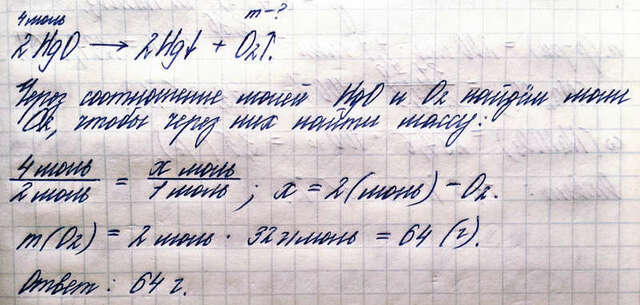 4 моль m-?
2HgO → 2Hg↓ + O₂↑.
Через соотношение молей HgO и O₂ найдём моли
O₂, чтобы через них найти массу:
4 моль / 2 моль = x моль / 1 моль ; x = 2 (моль) - O₂.
m(O₂) = 2 моль · 32 г/моль = 64 (г).
Ответ: 64 г.